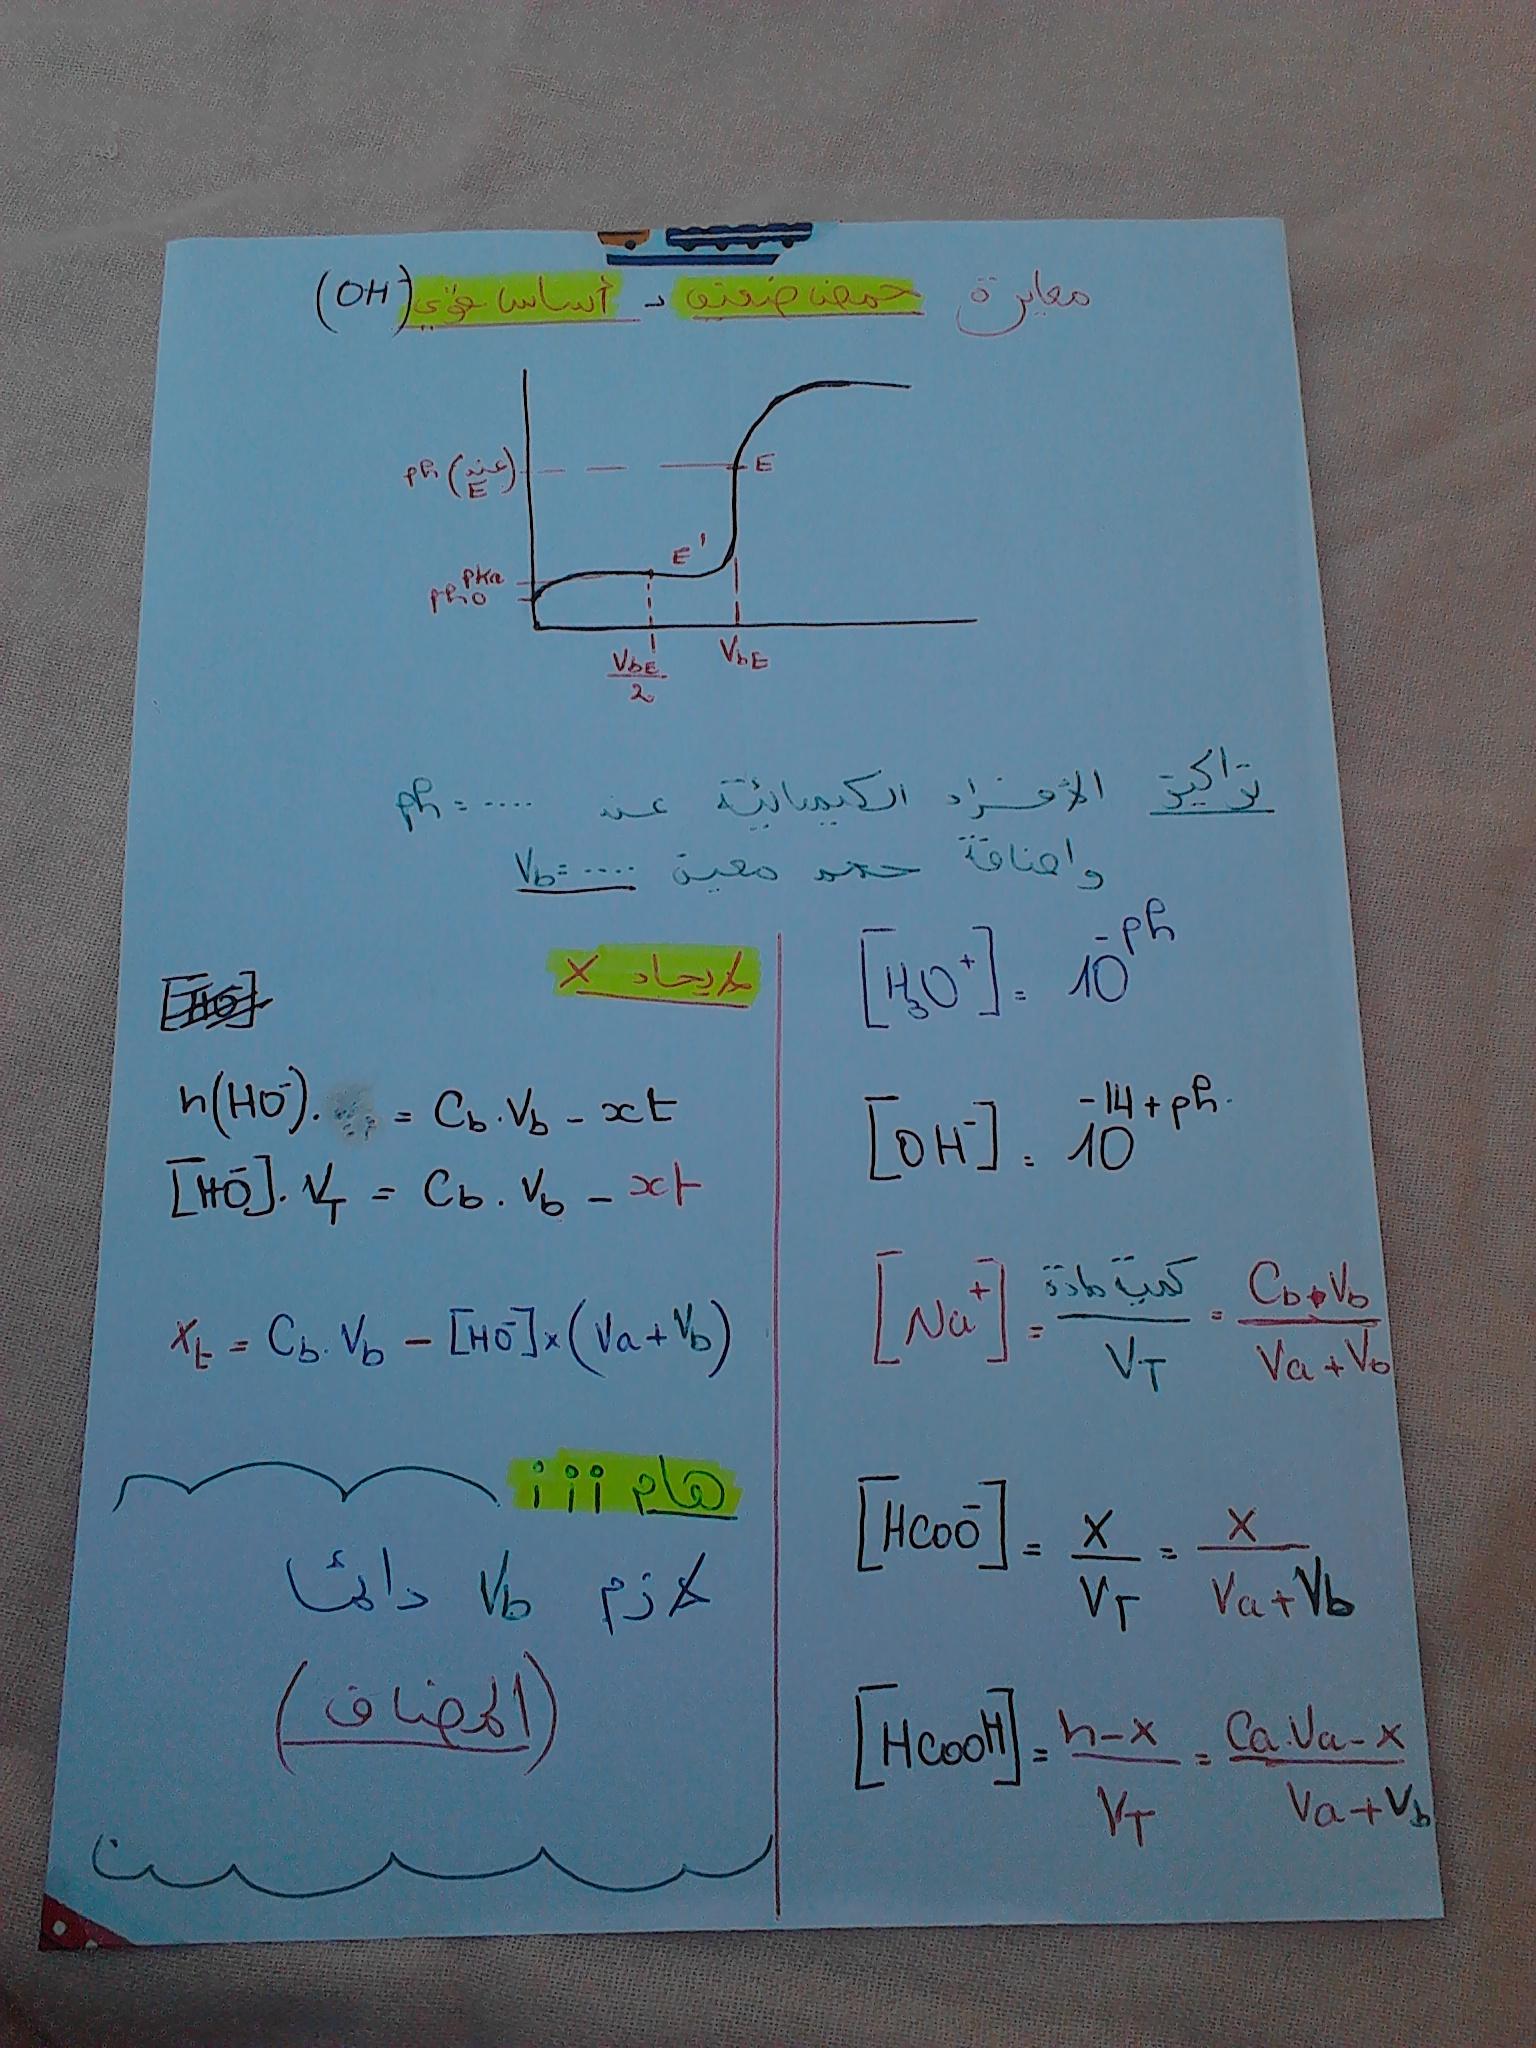 معايرة حمض ضعيف بـ أساس قوي (OH)
ph (عند E)
E
E'
pka
ph0
VbE/2
VbE
تراكيز الأفراد الكيميائية عند ph = ....
واضافة حجم معين Vb = ....
[H3O+] = 10^-ph
[OH-] = 10^-14+ph
[Na+] = كمية مادة / VT = Cb.Vb / Va+Vb
[HCOO-] = x / VT = x / Va+Vb
[HCOOH] = n-x / VT = Ca.Va-x / Va+Vb
لايجاد x
[HO-]
n(HO-). = Cb.Vb - xt
[HO-].VT = Cb.Vb - xt
xt = Cb.Vb - [HO-]x(Va+Vb)
هام ¡¡¡
لازم Vb دائما
(المضاف)